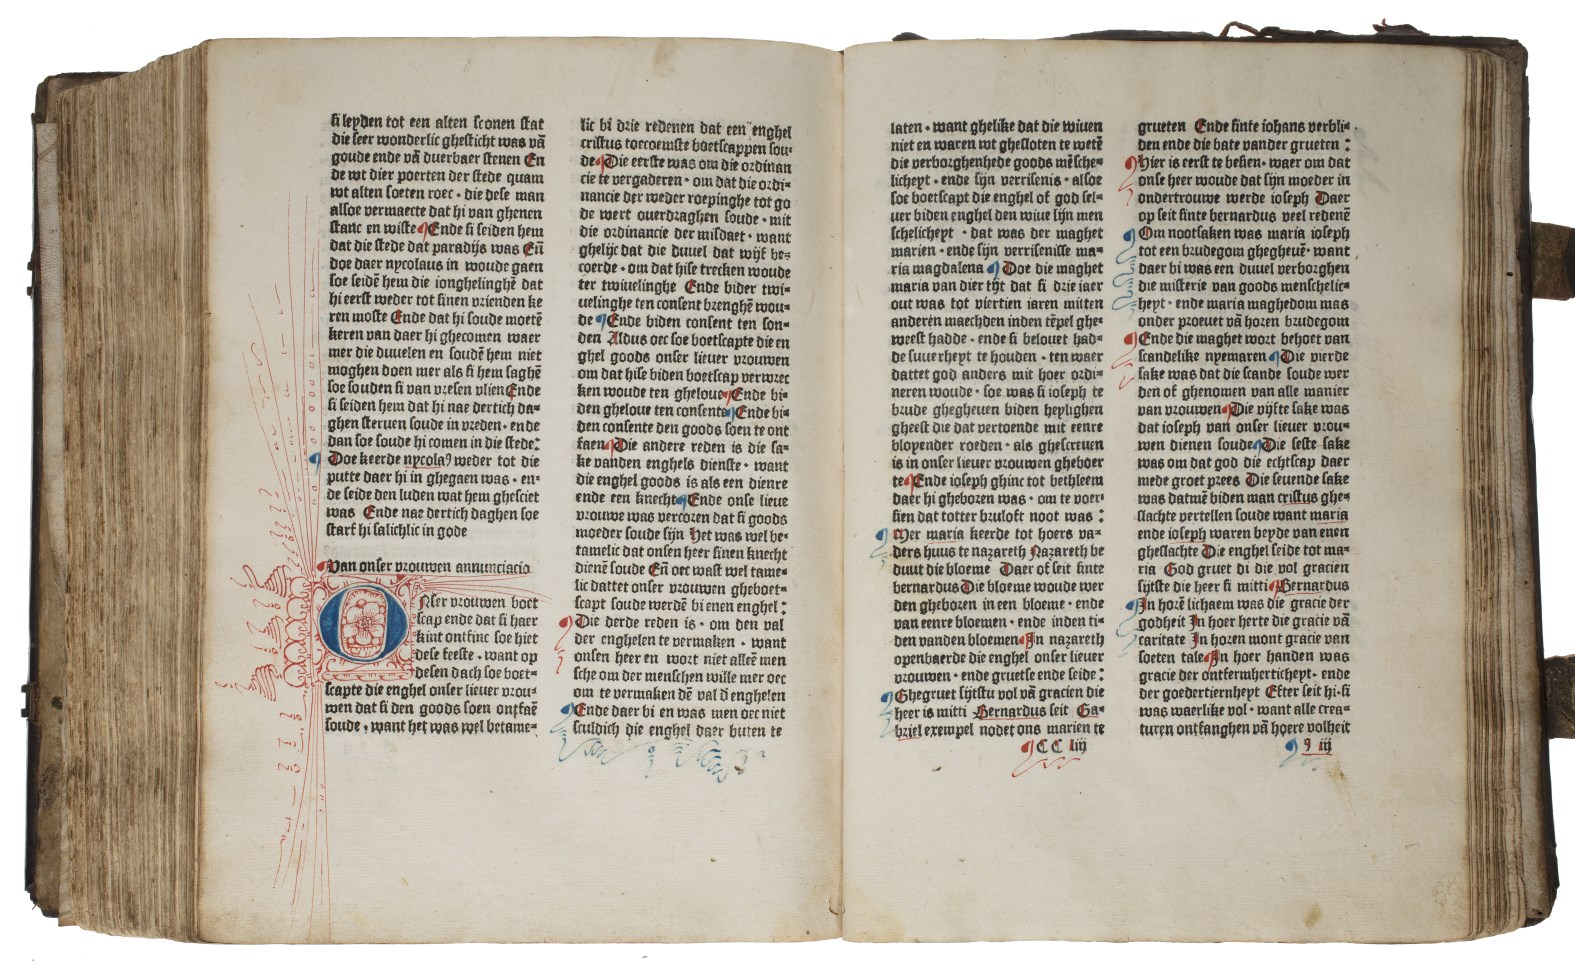 si leyden tot een alten sconen stat
die seer wonderlic ghesticht was vā
goude ende vā duerbaer stenen En
de wt dier poerten der stede quam
wt alten soeten roec · die dese man
alsoe vermaecte dat hi van ghenen
stanc en wiste ¶ Ende si seiden hem
dat die stede dat paradijs was En̄
doe daer nycolaus in woude gaen
soe seidē hem die ionghelinghē dat
hi eerst weder tot sinen vrienden ke
ren moste Ende dat hi soude moetē
keren van daer hi ghecomen waer
mer die duuelen en soudē hem niet
moghen doen mer als si hem saghē
soe souden si van vresen vlien Ende
si seiden hem dat hi nae dertich da-
ghen steruen soude in vreden · ende
dan soe soude hi comen in die stede:
¶ Doe keerde nycolaꝰ weder tot die
putte daer hi in ghegaen was · en-
de seide den luden wat hem ghesciet
was Ende nae dertich daghen soe
starf hi salichlic in gode
¶ Van onser vrouwen annunciacio
ONser vrouwen boet
scap ende dat si haer
kint ontfinc soe hiet
dese feeste · want op
desen dach soe boet-
scapte die enghel onser lieuer vrou-
wen dat si den goods soen ontfaē
soude · want het was wel betame-
lic bi drie redenen dat een enghel
cristus toecoemste boetscappen sou-
de ¶ Die eerste was om die ordinan
cie te vergaderen · om dat die ordi-
nancie der weder roepinghe tot go
de wert ouerdraghen soude · mit
die ordinancie der misdaet · want
ghelijc dat die duuel dat wijf be-
coerde · om dat hise trecken woude
ter twiuelinghe Ende bider twi-
uelinghe ten consent brenghē wou-
de ¶ Ende biden consent ten son-
den Aldus oec soe boetscapte die en
ghel goods onser lieuer vrouwen
om dat hise biden boetscap verwrec
ken woude ten gheloue ¶ Ende bi-
den gheloue ten consente ¶ Ende bi-
den consente den goods soen te ont
faen ¶ Die andere reden is die sa-
ke vanden enghels dienste · want
die enghel goods is als een dienre
ende een knecht ¶ Ende onse lieue
vrouwe was vercoren dat si goods
moeder soude sijn Het was wel be-
tamelic dat onsen heer sinen knecht
dienē soude En̄ oec wast wel tame-
lic dattet onser vrouwen gheboet-
scapt soude werdē bi enen enghel:
¶ Die derde reden is · om den val
der enghelen te vermaken · want
onsen heer en wort niet alleē men
sche om der menschen wille mer oec
om te vermaken dē val d enghelen
¶ Ende daer bi en was men oec niet
sculdich die enghel daer buten te
laten · want ghelike dat die wiuen
niet en waren wt ghesloten te wetē
die verborghenhede goods mēsche-
licheyt · ende sijn verrisenis · alsoe
soe boetscapt die enghel of god sel-
uer biden enghel den wiue sijn men
schelicheyt · dat was der maghet
marien · ende sijn verrisenisse ma-
ria magdalena ¶ Doe die maghet
maria van dier tijt dat si drie iaer
out was tot viertien iaren mitten
anderen maechden inden tēpel ghe-
weest hadde · ende si belouet had-
de suuerheyt te houden · ten waer
dattet god anders mit hoer ordi-
neren woude · soe was si ioseph te
brude ghegheuen biden heylighen
gheest die dat vertoende mit eenre
bloyender roeden · als ghescreuen
is in onser lieuer vrouwen gheboer
te ¶ Ende ioseph ghinc tot bethleem
daer hi gheboren was · om te voer-
sien dat totter bruloft noot was:
¶ Mer maria keerde tot hoers va-
ders huus te nazareth Nazareth be
duut die bloeme Daer of seit sinte
bernardus Die bloeme woude wer
den gheboren in een bloeme · ende
van eenre bloemen · ende inden ti-
den vanden bloemen ¶ In nazareth
openbaerde die enghel onser lieuer
vrouwen · ende gruetse ende seide:
¶ Ghegruet sijtstu vol vā gracien die
heer is mitti Bernardus seit Ga-
briel exempel nodet ons marien te
¶ CC liij
grueten Ende sinte iohans verbli-
den ende die bate vander grueten:
¶ Hier is eerst te besien · waer om dat
onse heer woude dat sijn moeder in
ondertrouwe werde ioseph Daer
op seit sinte bernardus veel redenē
¶ Om nootsaken was maria ioseph
tot een brudegom ghegheuē · want
daer bi was een duuel verborghen
die misterie van goods menschelic-
heyt · ende maria maghedom was
onder proeuet vā horen brudegom
¶ Ende die maghet wort behoet van
scandelike nyemaren ¶ Die vierde
sake was dat die scande soude wer
den of ghenomen van alle manier
van vrouwen ¶ Die vijfte sake was
dat ioseph van onser lieuer vrou-
wen dienen soude ¶ Die seste sake
was om dat god die echtscap daer
mede groet prees Die seuende sake
was datmē biden man cristus ghe-
slachte vertellen soude want maria
ende ioseph waren beyde van enen
gheslachte Die enghel seide tot ma-
ria God gruet di die vol gracien
sijtste die heer si mitti ¶ Bernardus
¶ In horē lichaem was die gracie der
godheit In hoer herte die gracie vā
caritate In horen mont gracie van
soeten tale ¶ In hoer handen was
gracie der ontfermherticheyt · ende
der goedertiernheyt Efter seit hi · si
was waerlike vol · want alle crea-
turen ontfanghen vā hoere volheit
¶ 9 iij